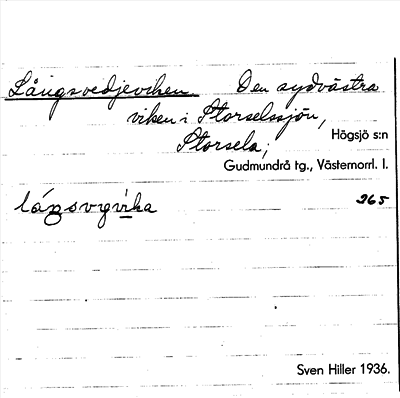 Långsvedjeviken. Den sydvästra
viken i Storselssjön,
Storsela; Högsjö s:n
Gudmundrå tg., Västernorrl. l.
265
Sven Hiller 1936.